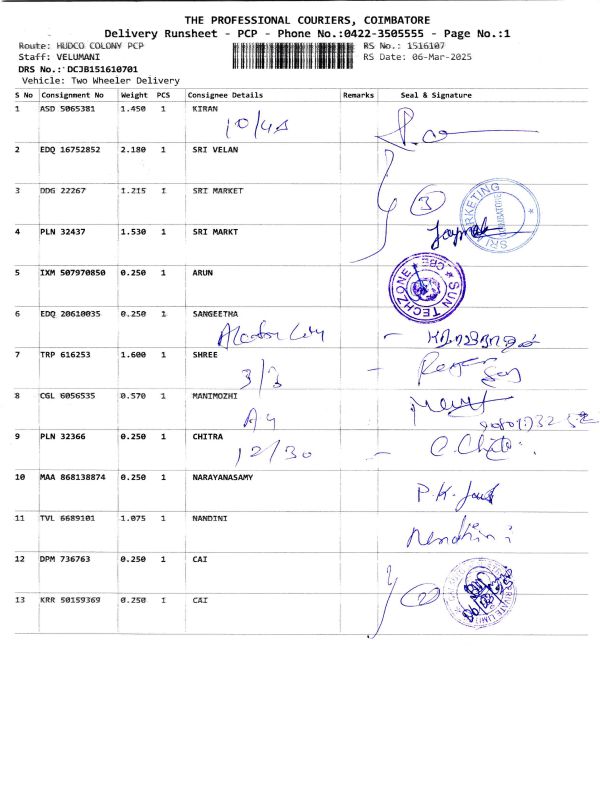 THE PROFESSIONAL COURIERS, COIMBATORE
Delivery Runsheet - PCP - Phone No.:0422-3505555 - Page No.:1
Route: HUDCO COLONY PCP RS No.: 1516107
Staff: VELUMANI RS Date: 06-Mar-2025
DRS No.: DCJB151610701
Vehicle: Two Wheeler Delivery
S No Consignment No Weight PCS Consignee Details Remarks Seal & Signature
1 ASD 5065381 1.450 1 KIRAN
2 EDQ 16752852 2.180 1 SRI VELAN
3 DDG 22267 1.215 1 SRI MARKET
3
SRI MARKETING
4 PLN 32437 1.530 1 SRI MARKT
5 IXM 507970850 0.250 1 ARUN
SUN TECHZONE CBE
6 EDQ 20610035 0.250 1 SANGEETHA
7 TRP 616253 1.600 1 SHREE
3/3
8 CGL 6056535 0.570 1 MANIMOZHI
A4
9 PLN 32366 0.250 1 CHITRA
12/30 - C.Chitra
10 MAA 868138874 0.250 1 NARAYANASAMY
11 TVL 6689101 1.075 1 NANDINI
Nandhini
12 DPM 736763 0.250 1 CAI
2
13 KRR 50159369 0.250 1 CAI